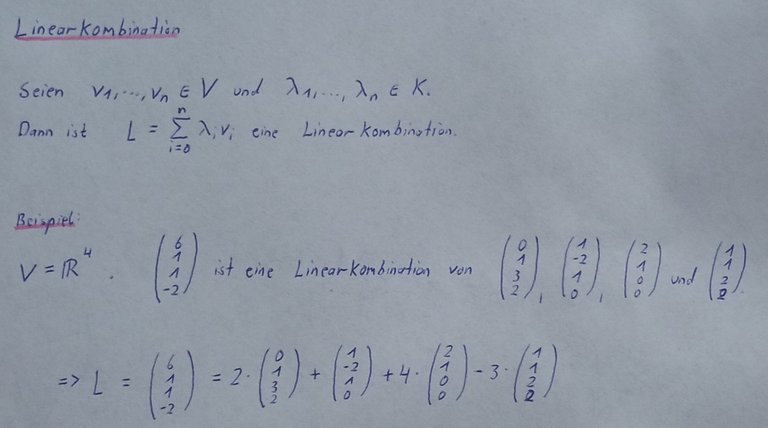 Linearkombination
Seien v1,...,vn ∈ V und λ1,..., λn ∈ K.
Dann ist L = ∑_{i=0}^{n} λivi eine Linearkombination.
Beispiel:
V = ℝ^4. (6 1 1 -2) ist eine Linearkombination von (0 1 3 2), (1 -2 1 0), (2 1 0 0) und (1 1 2 2).
=> L = (6 1 1 -2) = 2 · (0 1 3 2) + (1 -2 1 0) + 4 · (2 1 0 0) - 3 · (1 1 2 2)